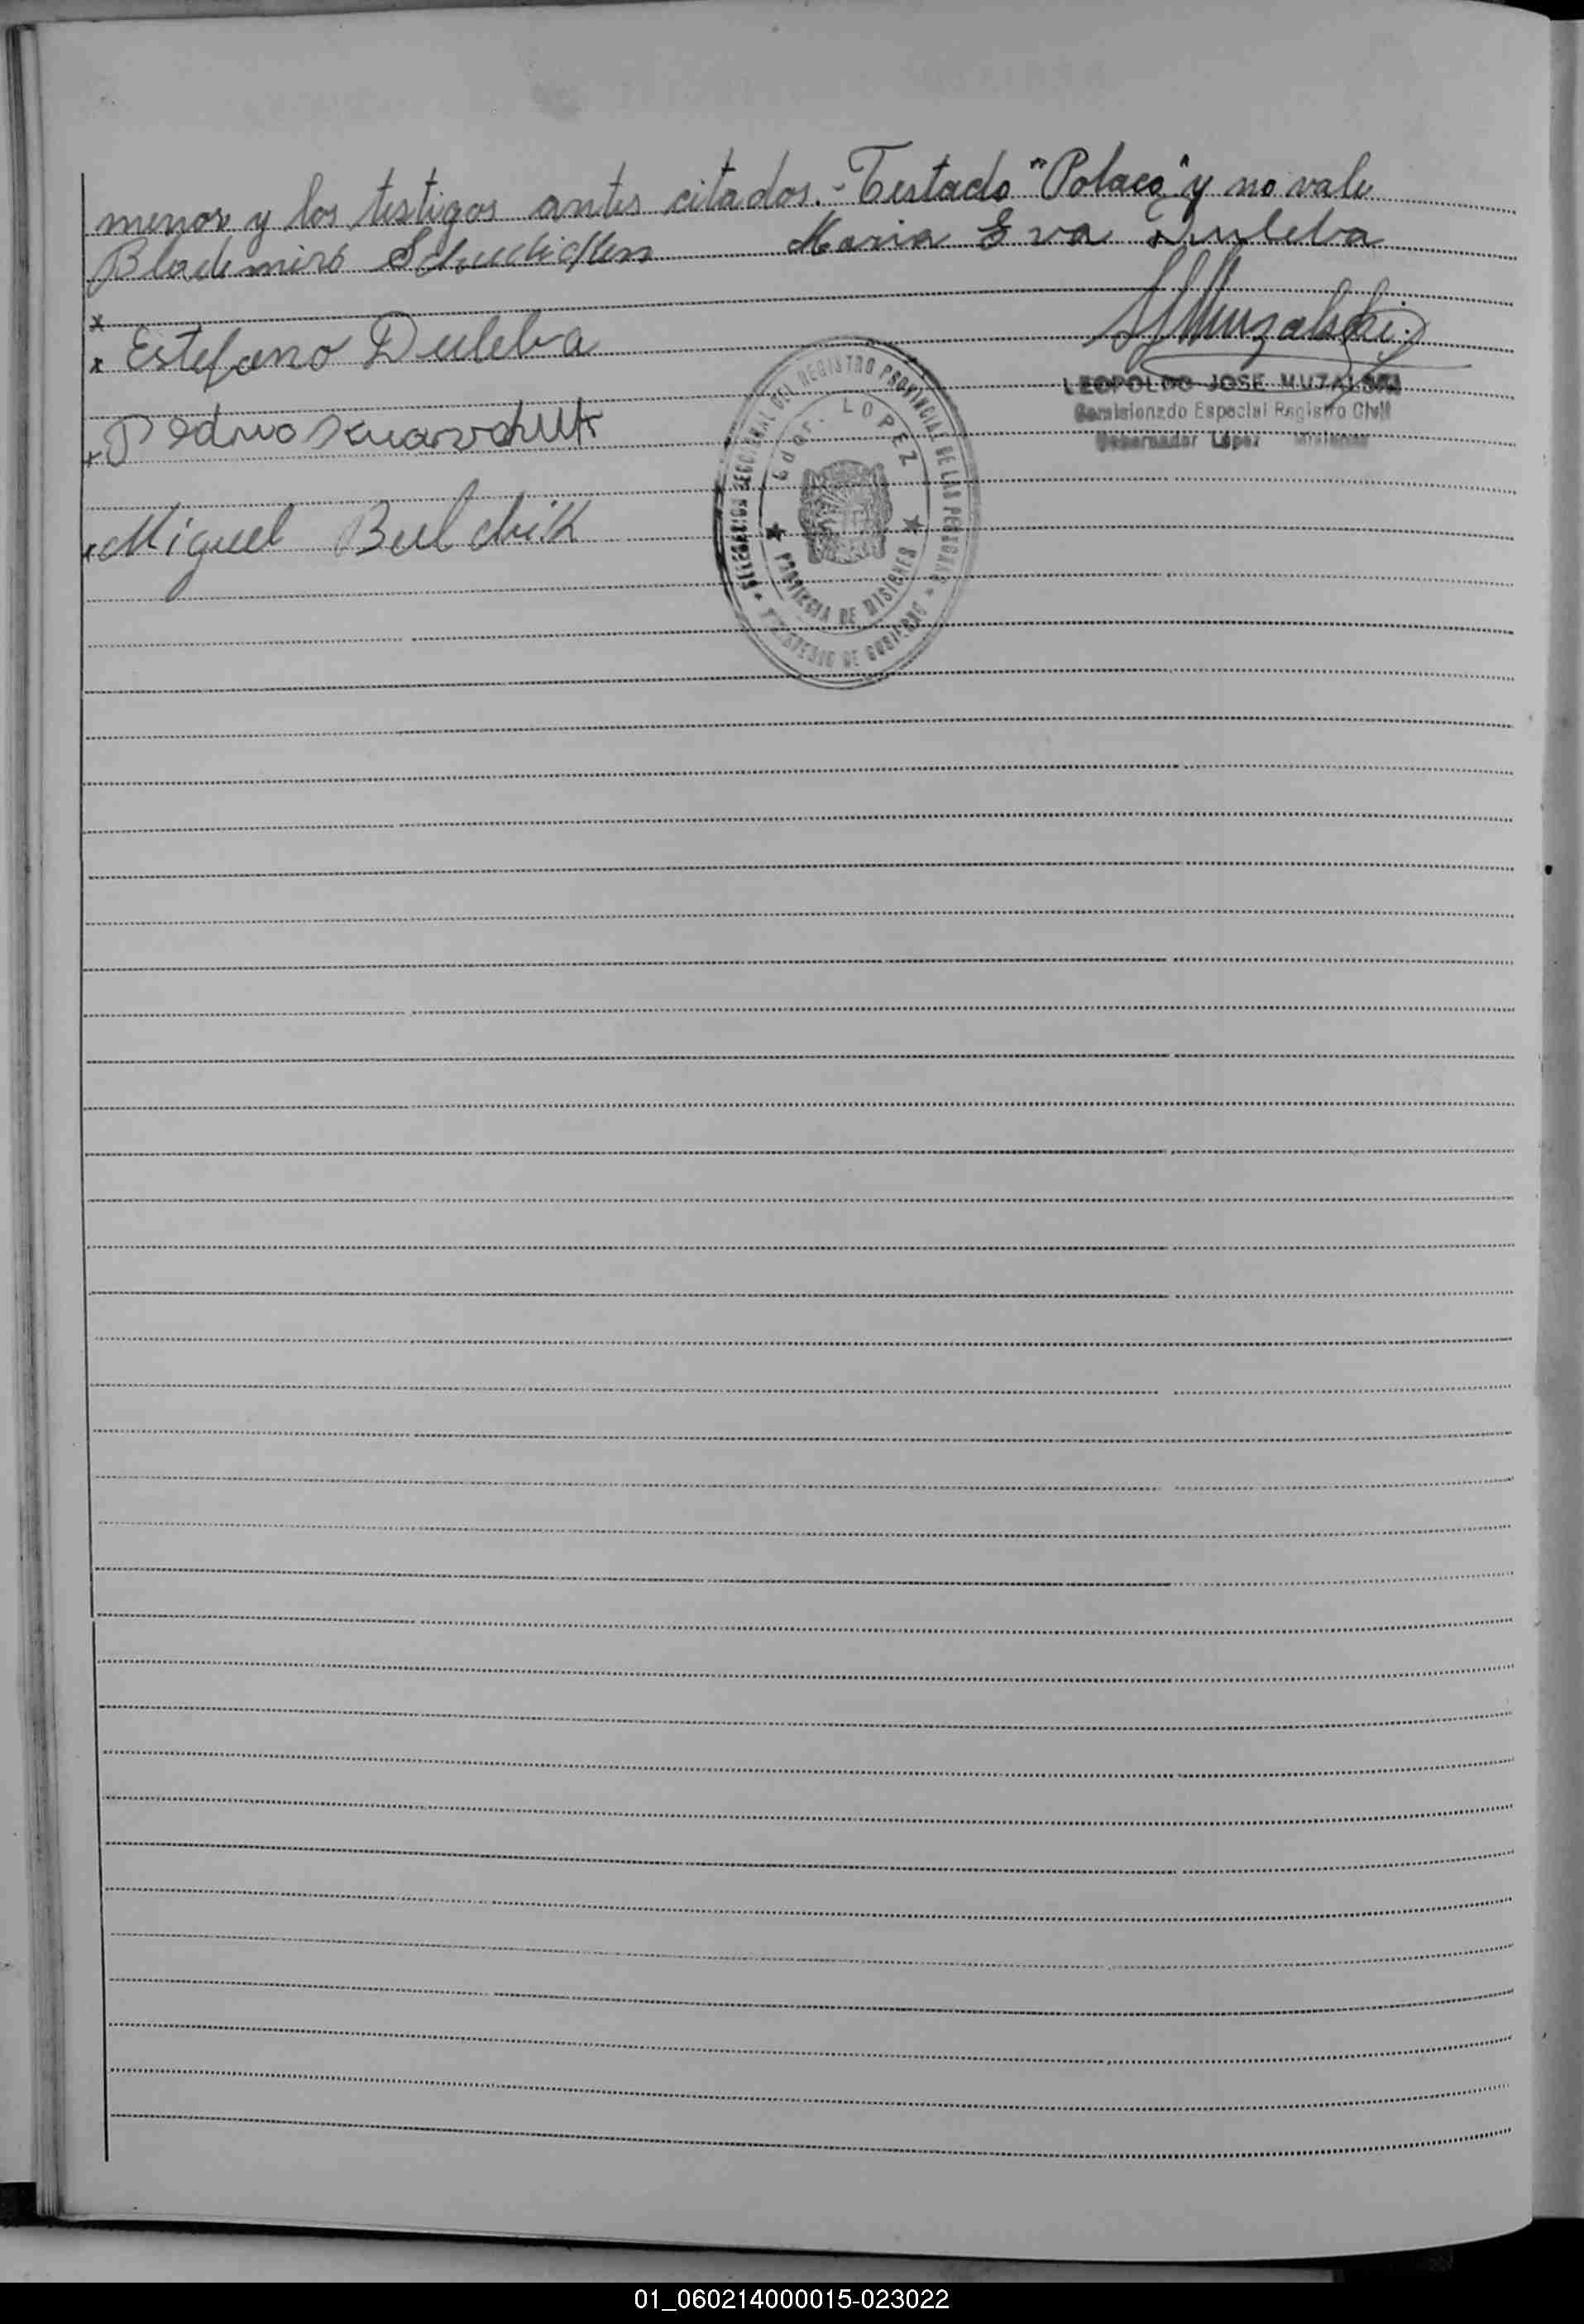 menor y los testigos antes citados.- Testado "Polaco" y no vale
Blademiro Maria Eva Duleba
x
x Estefano Duleba
LEOPOLDO JOSE MUZALSKI
Comisionado Especial Registro Civil
Gobernador López Misiones
x Pedro
x Miguel Bulchik
DELEGACION SECCIONAL DEL REGISTRO PROVINCIAL DE LAS PERSONAS
MINISTERIO DE GOBIERNO
Gdor. LOPEZ
PROVINCIA DE MISIONES
01_060214000015-023022